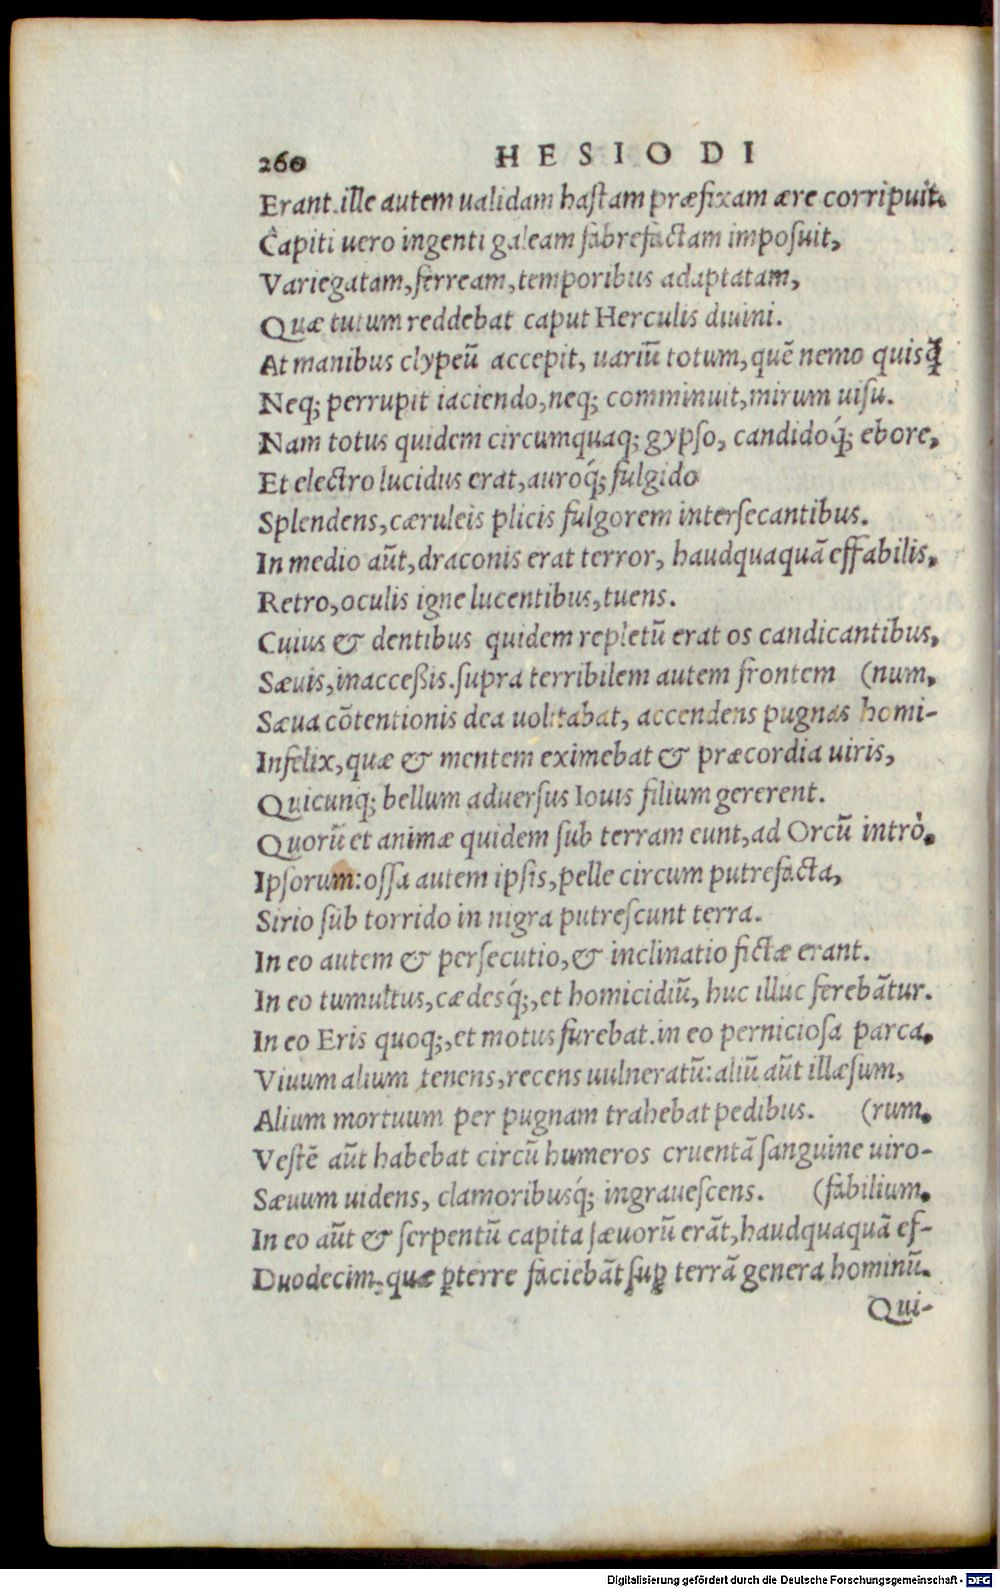 260 HESIODI
Erant. ille autem ualidam hastam præfixam ære corripuit.
Capiti uero ingenti galeam fabrefactam imposuit,
Variegatam, ferream, temporibus adaptatam,
Quæ tutum reddebat caput Herculis diuini.
At manibus clypeū accepit, uariū totum, quē nemo quisq̃
Neq; perrupit iaciendo, neq; comminuit, mirum uisu.
Nam totus quidem circumquaq; gypso, candidoq́; ebore,
Et electro lucidus erat, auroq́; fulgido
Splendens, cæruleis plicis fulgorem intersecantibus.
In medio aūt, draconis erat terror, haudquaquā effabilis,
Retro, oculis igne lucentibus, tuens.
Cuius & dentibus quidem repletū erat os candicantibus,
Sæuis, inacceßis. supra terribilem autem frontem (num,
Sæua cōtentionis dea uolitabat, accendens pugnas homi-
Infelix, quæ & mentem eximebat & præcordia uiris,
Quicunq; bellum aduersus Iouis filium gererent.
Quorū et animæ quidem sub terram eunt, ad Orcū intrò.
Ipsorum: ossa autem ipsis, pelle circum putrefacta,
Sirio sub torrido in nigra putrescunt terra.
In eo autem & persecutio, & inclinatio fictæ erant.
In eo tumultus, cædesq́;, et homicidiū, huc illuc ferebātur.
In eo Eris quoq;, et motus furebat. in eo perniciosa parca.
Viuum alium tenens, recens uulneratū: aliū aūt illæsum,
Alium mortuum per pugnam trahebat pedibus. (rum.
Vestē aūt habebat circū humeros cruentā sanguine uiro-
Sæuum uidens, clamoribusq́; ingrauescens. (fabilium.
In eo aūt & serpentū capita sæuorū erāt, haudquaquā ef-
Duodecim, quæ ꝑterre faciebāt suꝑ terrā genera hominū.
Qui-
Digitalisierung gefördert durch die Deutsche Forschungsgemeinschaft - DFG